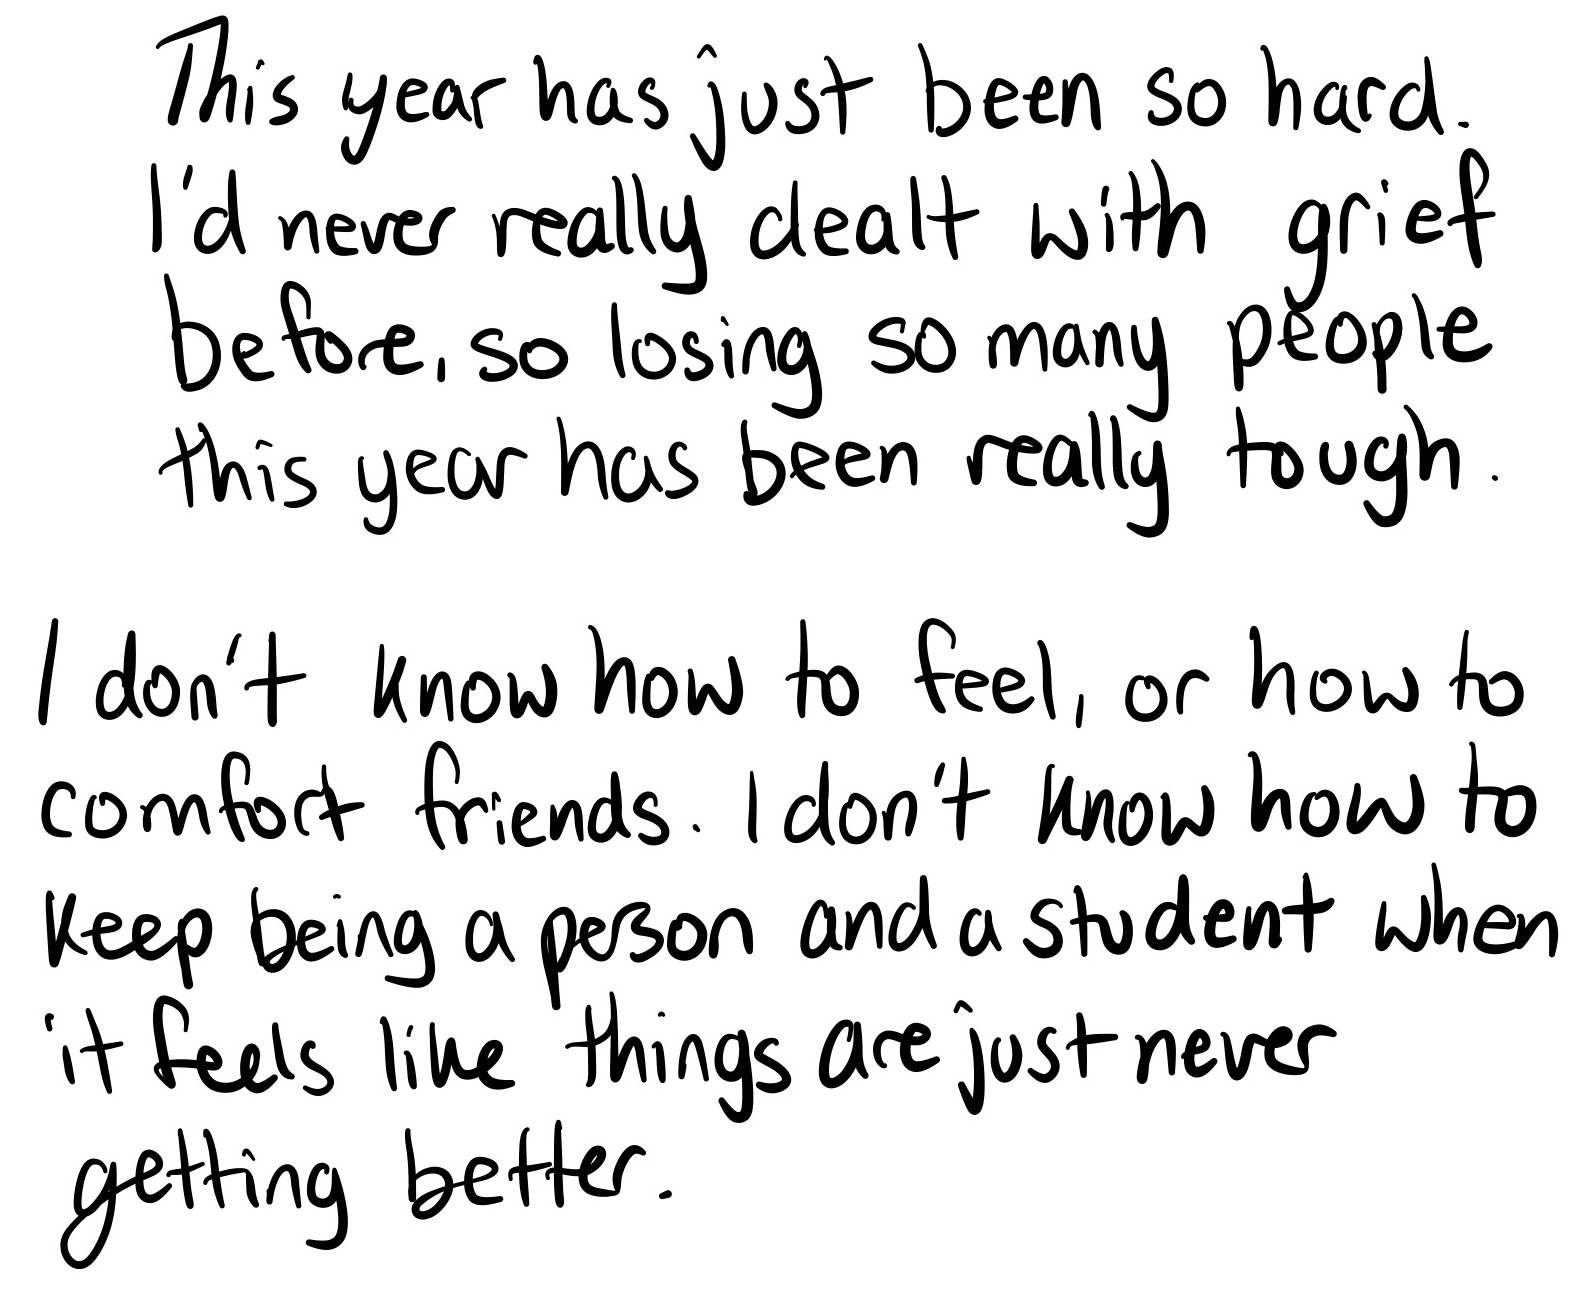 This year has just been so hard.
I'd never really dealt with grief
before, so losing so many people
this year has been really tough.
I don't know how to feel, or how to
comfort friends. I don't know how to
keep being a person and a student when
it feels like things are just never
getting better.